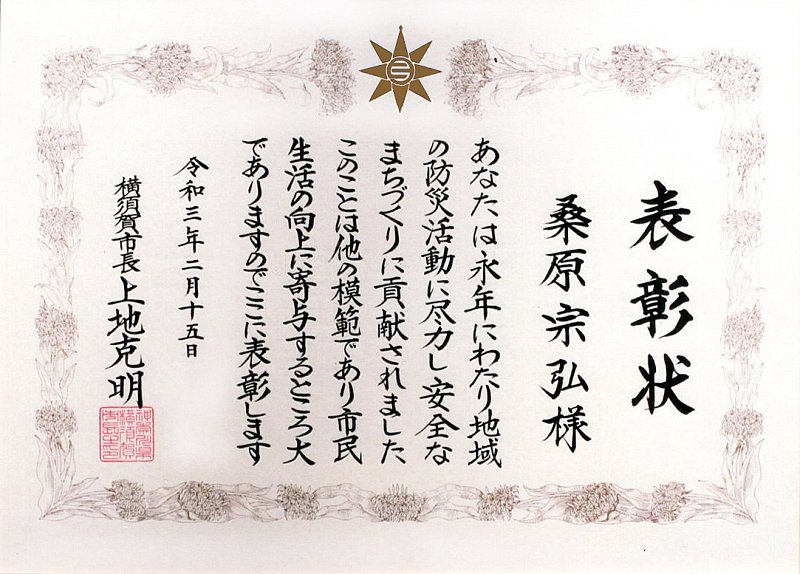 表彰状
桑原宗弘様
あなたは永年にわたり地域
の防災活動に尽力し安全な
まちづくりに貢献されました
このことは他の模範であり市民
生活の向上に寄与するところ大
でありますのでここに表彰します
令和三年二月十五日
横須賀市長 上地克明